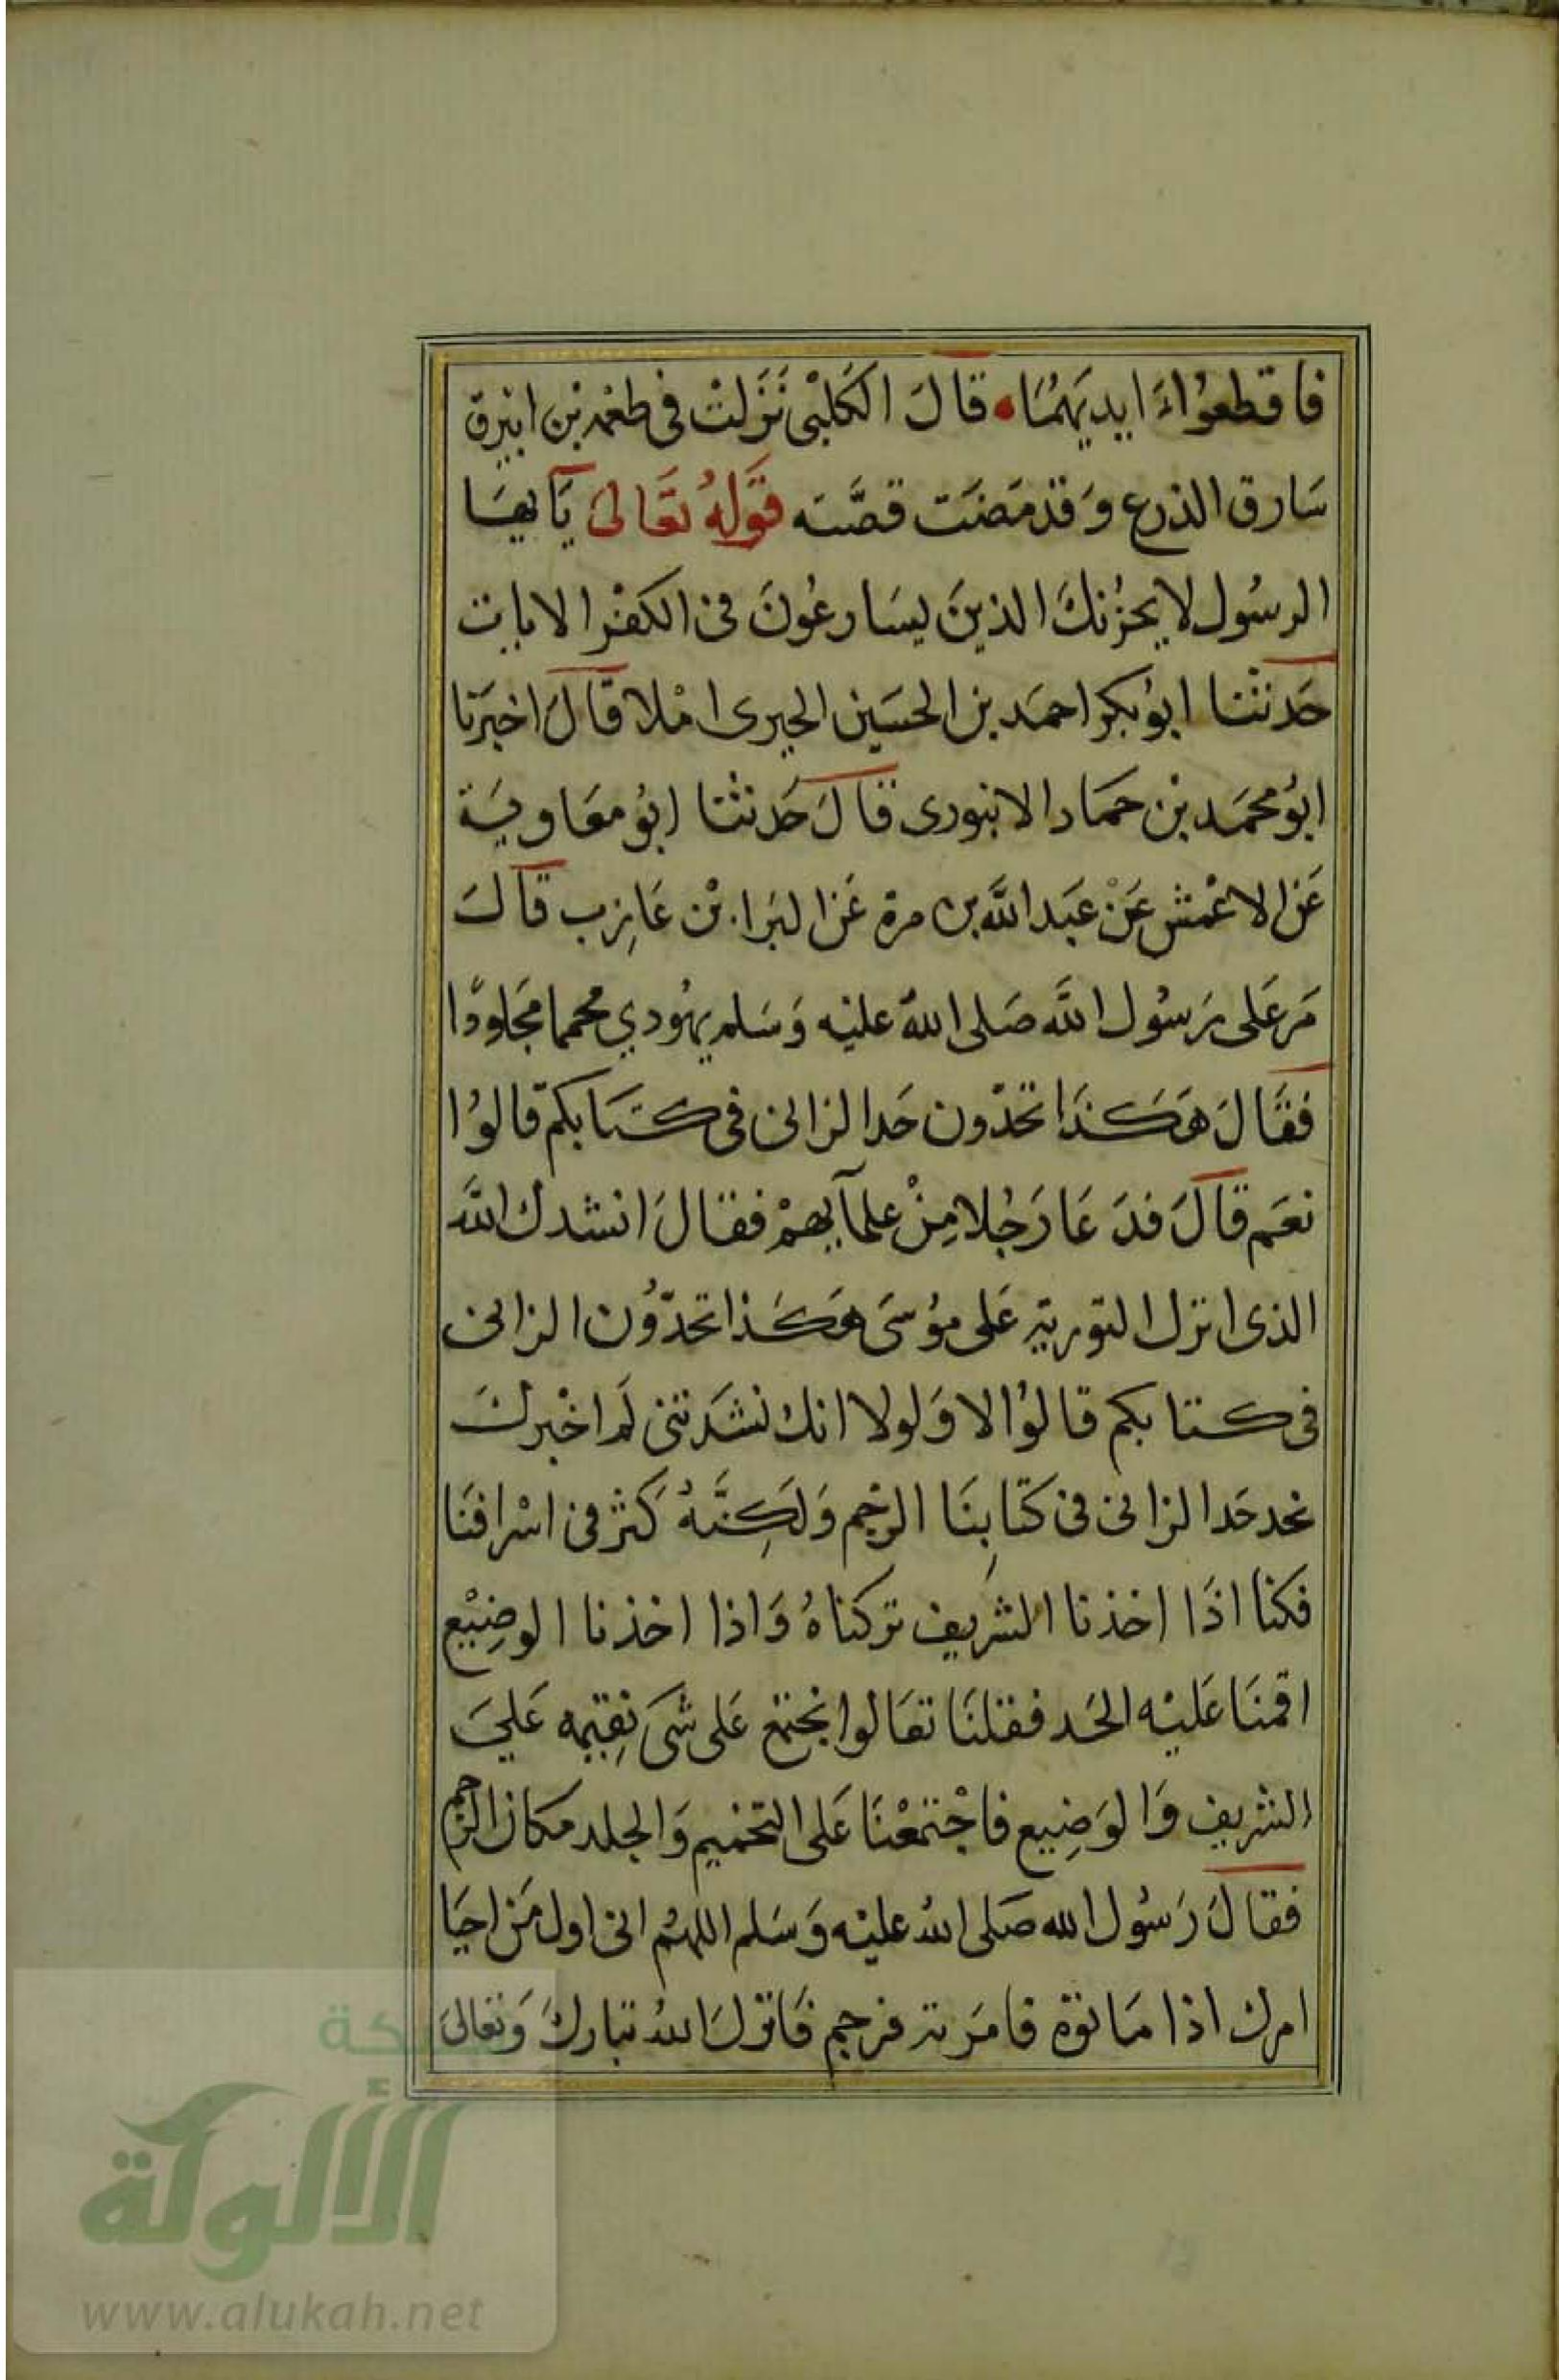 فاقطعواء ايديهما • قالَ الكلبْى نَزَلتْ فى طعْمه بْن ابيرق
سَارق الدرع وَقدْ مَضَت قصَّته قَولهُ تعَالىٰ يَآ يهَا
الرسُول لا يحزُنكَ الذينَ يسَارعُونَ فى الكفْر الايات
حَدثنَا ابوُ بكر احمَد بن الحسَين الحيرى امْلا قاَلَ اخبَرنا
ابوُ محمَد بْن حمَاد الابنوردى قاَلَ حَدثنَا ابوُ معَاويَة
عَن الاعْمش عَنْ عَبَد اللَّه بن مرة عَن البَرا بْن عَازب قاَلَ
مَر عَلى رَسُول اللَّه صَلى اللهُ عليْه وَسَلم يهُودي محمما مجَلودًا
فقَالَ هَكَذَا تحَدّون حَد الزانى فى كتَابكم قالوُا
نعَم قاَلَ فدَعَا رَجُلا مِنْ علمآيهمْ فقالَ انشدك اللَّه
الذى انزل التوريَة عَلى موُسَى هَكَذا تحَدّوُن الزانى
فى كتابكم قالوُا لا وَلولا انك نشَدتنى لَم اخْبرك
نحد حَد الزانى فى كتَابِنَا الرجْم وَلَكِنَّهُ كَثر فى اشْرافنَا
فكنا اذَا اخذنا الشريف تركناهُ وَاذا اخذنا الوضِيْع
اقمنَا عَليْه الحَد فقلنَا تعَالوا نجْتمَع عَلى شَى نقِيمه عَليَ
الشريف وَالوَضِيع فاجْتمعْنَا عَلى التحْميم وَالجلد مكان الرّجم
فقالَ رَسُول الله صَلى اللهُ عليْه وَسَلم اللهُم انى اول مَن احيَا
امرك اذا مَاتوة فامَر بة فرجم فَانزلَ اللهُ تبَاركَ وَتعَالىَ
شبكة
الألوكة
www.alukah.net